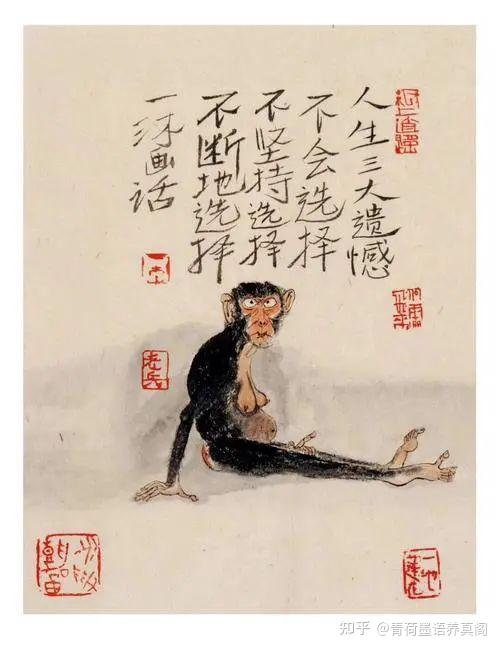 人生三大遗憾
不会选择
不坚持选择
不断地选择
一沫画话
老民
知乎 @青荷墨语养真阁